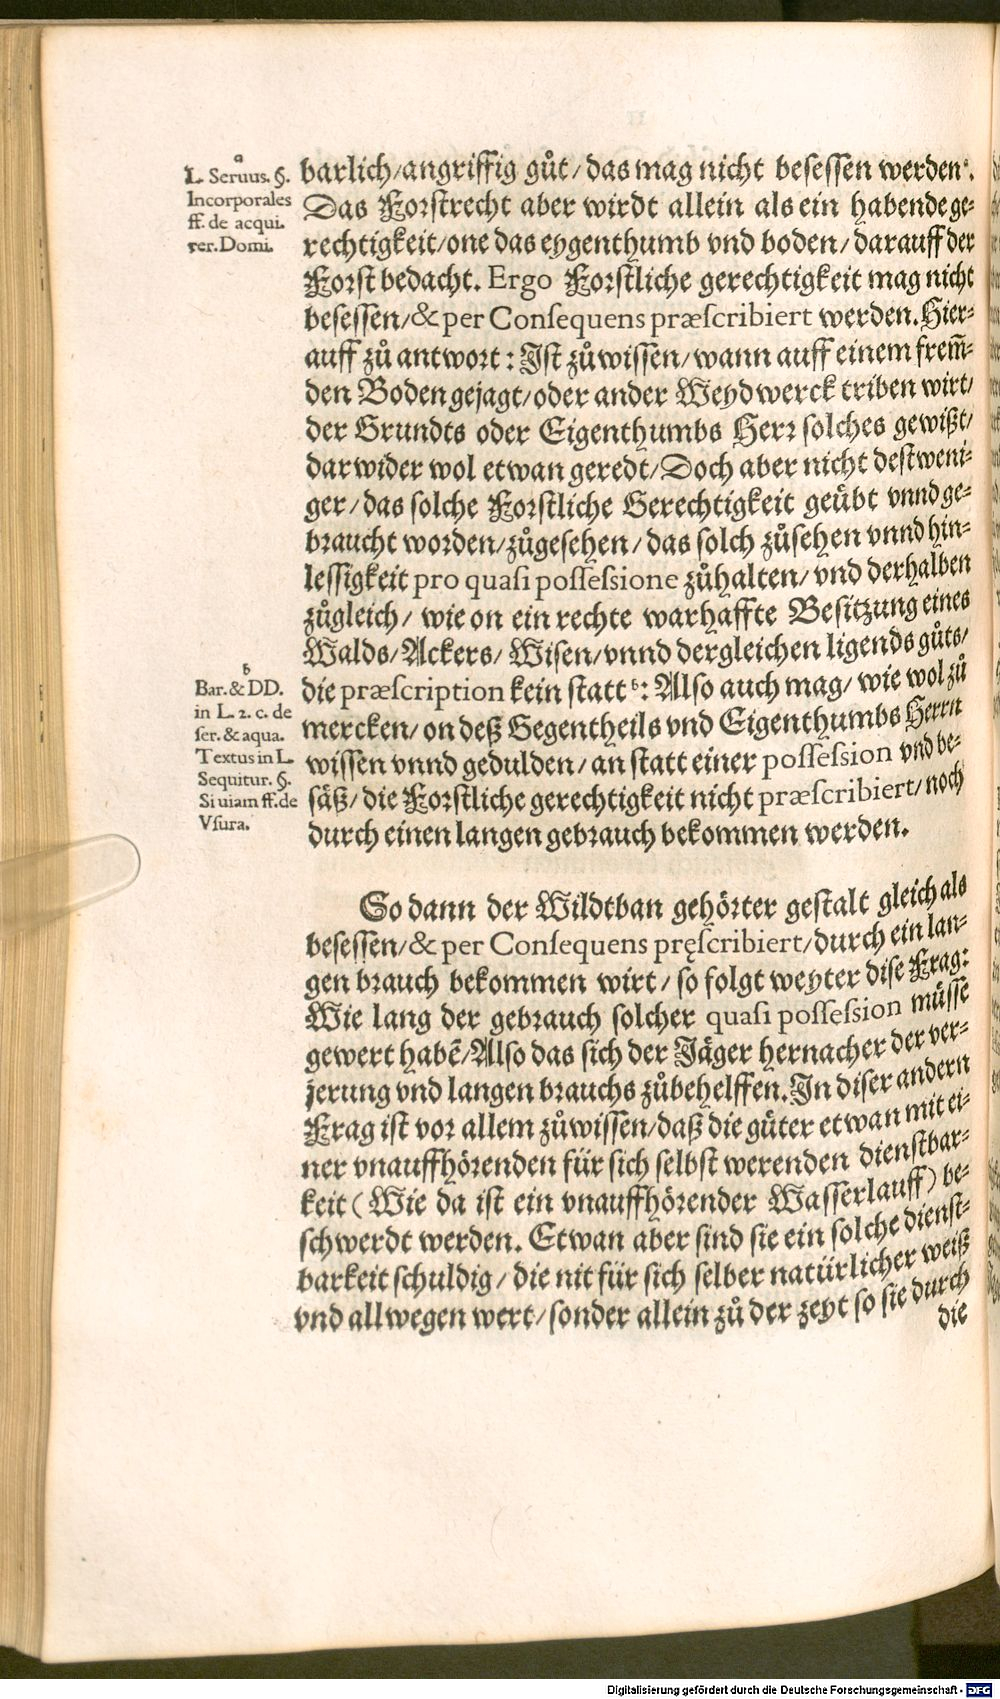 a
L. Seruus. §.
Incorporales
ff. de acqui.
rer. Domi.
barlich/angriffig gůt/das mag nicht besessen werden ᵃ.
Das Forstrecht aber wirdt allein als ein habende ge⸗
rechtigkeit/one das eygenthumb vnd boden/darauff der
Forst bedacht. Ergo Forstliche gerechtigkeit mag nicht
besessen/& per Conſequens præſcribiert werden. Hier⸗
auff zů antwort: Ist zůwissen/wann auff einem frem̃⸗
den Boden gejagt/oder ander Weydwerck triben wirt/
der Grundts oder Eigenthumbs Herr solches gewißt/
darwider wol etwan geredt/Doch aber nicht destweni⸗
ger/das solche Forstliche Gerechtigkeit geübt vnnd ge⸗
braucht worden/zůgesehen/das solch zůsehen vnnd hin⸗
lessigkeit pro quaſi poſſeſsione zůhalten/vnd derhalben
zůgleich/wie on ein rechte warhaffte Besitzung eines
Walds/Ackers/Wisen/vnnd dergleichen ligends gůts/
die præſcription kein statt ᵇ: Also auch mag/wie wol zů
mercken/on deß Gegentheils vnd Eigenthumbs Herrn
wissen vnnd gedulden/an statt einer poſſeſsion vnd be⸗
säß/die Forstliche gerechtigkeit nicht præſcribiert/noch
durch einen langen gebrauch bekommen werden.
b
Bar. & DD.
in L. 2. c. de
ſer. & aqua.
Textus in L.
Sequitur. §.
Si uiam ff. de
Vſura.
So dann der Wildtban gehörter gestalt gleich als
besessen/& per Conſequens pręſcribiert/durch ein lan⸗
gen brauch bekommen wirt/so folgt weyter dise Frag:
Wie lang der gebrauch solcher quaſi poſſeſsion müsse
gewert habē/Also das sich der Jäger hernacher der ver⸗
jerung vnd langen brauchs zůbehelffen. In diser andern
Frag ist vor allem zůwissen/daß die güter etwan mit ei⸗
ner vnauffhörenden für sich selbst werenden dienstbar⸗
keit (Wie da ist ein vnauffhörender Wasserlauff) be⸗
schwerdt werden. Etwan aber sind sie ein solche dienst⸗
barkeit schuldig/die nit für sich selber natürlicher weiß
vnd allwegen wert/sonder allein zů der zeyt so sie durch
die
Digitalisierung gefördert durch die Deutsche Forschungsgemeinschaft - DFG